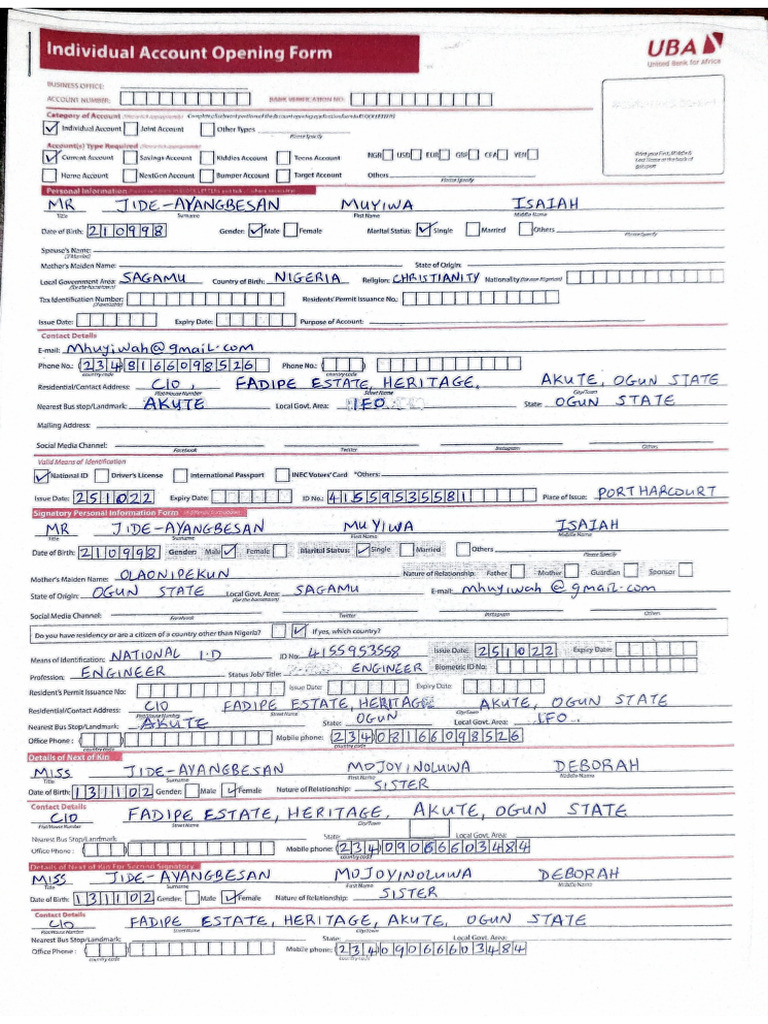 Individual Account Opening Form
UBA
United Bank for Africa
BUSINESS OFFICE:
ACCOUNT NUMBER: BANK VERIFICATION NO:
Category of Account
Individual Account Joint Account Other Types Please Specify
Account(s) Type Required
Current Account Savings Account Kiddies Account Teens Account NGN USD EUR GBP CFA YEN
Home Account NextGen Account Bumper Account Target Account Others Please Specify
Personal Information
MR JIDE-AYANGBESAN MUYIWA ISAIAH
Title Surname First Name Middle Name
Date of Birth: 210998 Gender: Male Female Marital Status: Single Married Others Please Specify
Spouse's Name:
(If Married)
Mother's Maiden Name: State of Origin:
Local Government Area: SAGAMU Country of Birth: NIGERIA Religion: CHRISTIANITY Nationality
Tax Identification Number: Residents' Permit Issuance No.:
Issue Date: Expiry Date: Purpose of Account:
Contact Details
E-mail: mhuyiwah@gmail.com
Phone No.: (234)8166098526 Phone No.:
country code country code
Residential/Contact Address: C10, FADIPE ESTATE, HERITAGE, AKUTE, OGUN STATE
Flat/House Number Street Name City/Town
Nearest Bus stop/Landmark: AKUTE Local Govt. Area: IFO State: OGUN STATE
Mailing Address:
Social Media Channel: Facebook Twitter Instagram Others
Valid Means of Identification
National ID Driver's License International Passport INEC Voters' Card *Others:
Issue Date: 251022 Expiry Date: ID No.: 41559535581 Place of Issue: PORTHARCOURT
Signatory Personal Information Form
MR JIDE-AYANGBESAN MUYIWA ISAIAH
Title Surname First Name Middle Name
Date of Birth: 210998 Gender: Male Female Marital Status: Single Married Others Please Specify
Mother's Maiden Name: OLAONIPEKUN Nature of Relationship: Father Mother Guardian Sponsor
State of Origin: OGUN STATE Local Govt. Area: SAGAMU E-mail: mhuyiwah@gmail.com
Social Media Channel: Facebook Twitter Instagram Others
Do you have residency or are a citizen of a country other than Nigeria? If yes, which country?
Means of Identification: NATIONAL I.D ID No: 4155953558 Issue Date: 251022 Expiry Date:
Profession: ENGINEER Status Job/Title: ENGINEER Biometric ID No.:
Resident's Permit Issuance No: Issue Date: Expiry Date:
Residential/Contact Address: C10 FADIPE ESTATE, HERITAGE AKUTE, OGUN STATE
Flat/House Number Street Name City/Town
Nearest Bus Stop/Landmark: AKUTE State: OGUN Local Govt. Area: IFO.
Office Phone: Mobile phone: 23408166098526
country code country code
Details of Next of Kin
MISS JIDE-AYANGBESAN MOJOYINOLUWA DEBORAH
Title Surname First Name Middle Name
Date of Birth: 131102 Gender: Male Female Nature of Relationship: SISTER
Contact Details
C10 FADIPE ESTATE, HERITAGE, AKUTE, OGUN STATE
Flat/House Number Street Name City/Town
Nearest Bus Stop/Landmark: State: Local Govt. Area:
Office Phone: Mobile phone: (234)09066603484
country code
Details of Next of Kin For Second Signatory
MISS JIDE-AYANGBESAN MOJOYINOLUWA DEBORAH
Title Surname First Name Middle Name
Date of Birth: 131102 Gender: Male Female Nature of Relationship: SISTER
Contact Details
C10 FADIPE ESTATE, HERITAGE, AKUTE, OGUN STATE
Flat/House Number Street Name City/Town
Nearest Bus Stop/Landmark: State: Local Govt. Area:
Office Phone: Mobile phone: (234)09066603484
country code country code